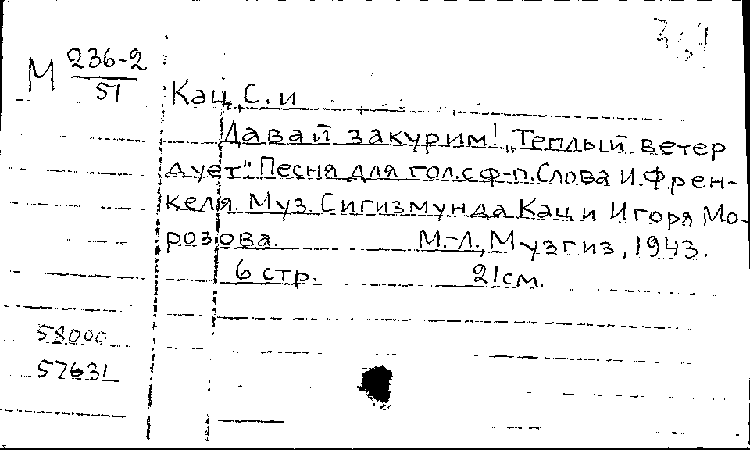 М 236-2
51
Кац, С. и
Давай закурим! „Теплый ветер
дует". Песня для гол. с ф-п. Слова И. Френ-
келя Муз. Сигизмунда Кац и Игоря Мо-
розова. М.-Л., Музгиз, 1943.
6 стр. 21 см.
58000
57631